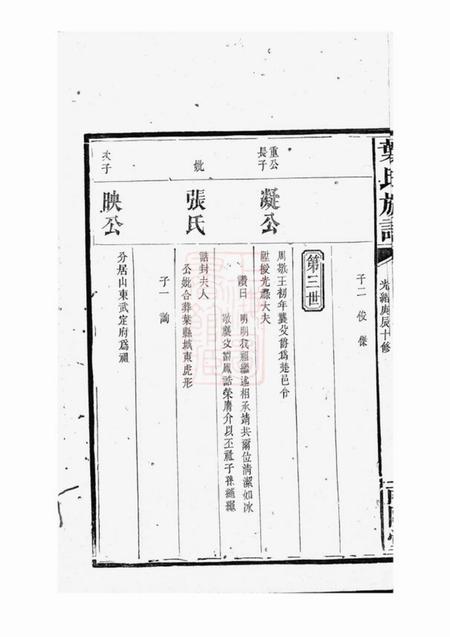 葉氏族譜
光緒庚辰十修
南陽堂
子二 俊 傑
第三世
重公長子
凝公
周敬王初年襲父爵為楚邑令
陞授光祿大夫
讚曰 明明我祖繼述相承靖共爾位清潔如冰
敬襲父爵鳳誥榮膺介以丕祉子孫繩繩
妣
張氏
誥封夫人
公妣合葬葉縣城東虎形
子一
次子
映公
分居山東武定府為祖